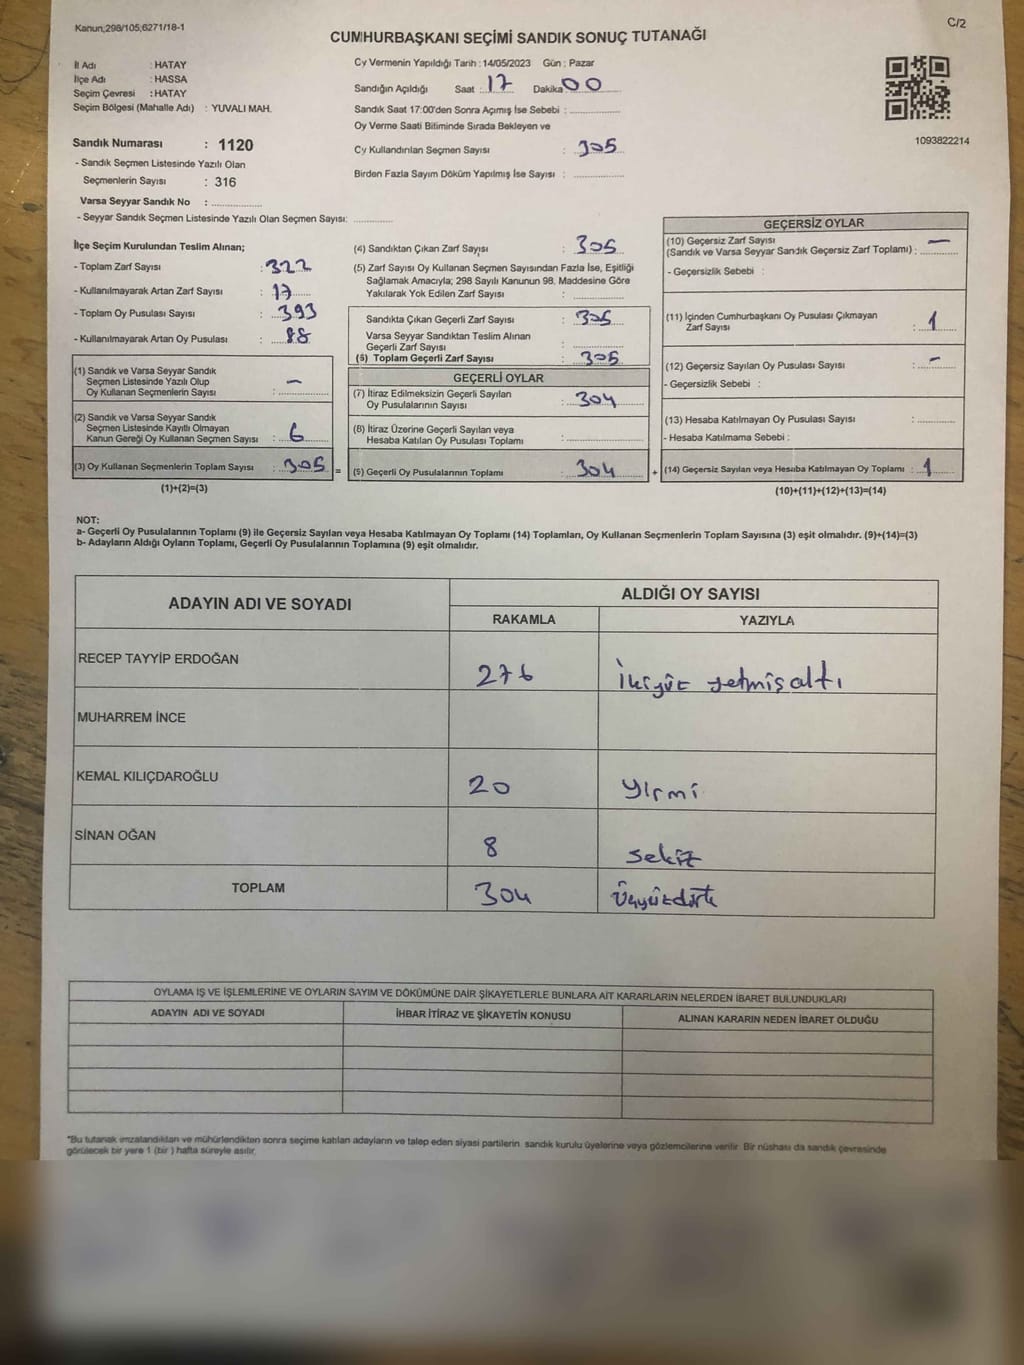 Kanun;298/105;6271/18-1
C/2
CUMHURBAŞKANI SEÇİMİ SANDIK SONUÇ TUTANAĞI
İl Adı : HATAY
İlçe Adı : HASSA
Seçim Çevresi : HATAY
Seçim Bölgesi (Mahalle Adı) : YUVALI MAH.
Sandık Numarası : 1120
- Sandık Seçmen Listesinde Yazılı Olan
Seçmenlerin Sayısı : 316
Varsa Seyyar Sandık No : ................
- Seyyar Sandık Seçmen Listesinde Yazılı Olan Seçmen Sayısı: ............
Oy Vermenin Yapıldığı Tarih : 14/05/2023 Gün : Pazar
Sandığın Açıldığı Saat : 17 Dakika 00
Sandık Saat 17:00'den Sonra Açımış İse Sebebi : ................
Oy Verme Saati Bitiminde Sırada Bekleyen ve
Oy Kullandırılan Seçmen Sayısı : 305
Birden Fazla Sayım Döküm Yapılmış İse Sayısı : ................
1093822214
İlçe Seçim Kurulundan Teslim Alınan;
- Toplam Zarf Sayısı : 322
- Kullanılmayarak Artan Zarf Sayısı : 17
- Toplam Oy Pusulası Sayısı : 393
- Kullanılmayarak Artan Oy Pusulası : 88
(1) Sandık ve Varsa Seyyar Sandık
Seçmen Listesinde Yazılı Olup
Oy Kullanan Seçmenlerin Sayısı : –
(2) Sandık ve Varsa Seyyar Sandık
Seçmen Listesinde Kayıtlı Olmayan
Kanun Gereği Oy Kullanan Seçmen Sayısı : 6
(3) Oy Kullanan Seçmenlerin Toplam Sayısı : 305 =
(1)+(2)=(3)
(4) Sandıktan Çıkan Zarf Sayısı : 305
(5) Zarf Sayısı Oy Kullanan Seçmen Sayısından Fazla İse, Eşitliği
Sağlamak Amacıyla; 298 Sayılı Kanunun 98. Maddesine Göre
Yakılarak Yok Edilen Zarf Sayısı : ................
Sandıkta Çıkan Geçerli Zarf Sayısı : 305
Varsa Seyyar Sandıktan Teslim Alınan
Geçerli Zarf Sayısı : ................
(6) Toplam Geçerli Zarf Sayısı : 305
GEÇERLİ OYLAR
(7) İtiraz Edilmeksizin Geçerli Sayılan
Oy Pusulalarının Sayısı : 304
(8) İtiraz Üzerine Geçerli Sayılan veya
Hesaba Katılan Oy Pusulası Toplamı : ................
(9) Geçerli Oy Pusulalarının Toplamı : 304 +
GEÇERSİZ OYLAR
(10) Geçersiz Zarf Sayısı
(Sandık ve Varsa Seyyar Sandık Geçersiz Zarf Toplamı) : –
- Geçersizlik Sebebi :
(11) İçinden Cumhurbaşkanı Oy Pusulası Çıkmayan
Zarf Sayısı : 1
(12) Geçersiz Sayılan Oy Pusulası Sayısı : –
- Geçersizlik Sebebi :
(13) Hesaba Katılmayan Oy Pusulası Sayısı : ............
- Hesaba Katılmama Sebebi :
(14) Geçersiz Sayılan veya Hesaba Katılmayan Oy Toplamı : 1
(10)+(11)+(12)+(13)=(14)
NOT:
a- Geçerli Oy Pusulalarının Toplamı (9) ile Geçersiz Sayılan veya Hesaba Katılmayan Oy Toplamı (14) Toplamları, Oy Kullanan Seçmenlerin Toplam Sayısına (3) eşit olmalıdır. (9)+(14)=(3)
b- Adayların Aldığı Oyların Toplamı, Geçerli Oy Pusulalarının Toplamına (9) eşit olmalıdır.
ADAYIN ADI VE SOYADI
ALDIĞI OY SAYISI
RAKAMLA YAZIYLA
RECEP TAYYİP ERDOĞAN 276 İkiyüz yetmişaltı
MUHARREM İNCE
KEMAL KILIÇDAROĞLU 20 Yirmi
SİNAN OĞAN 8 sekiz
TOPLAM 304 Üçyüzdört
OYLAMA İŞ VE İŞLEMLERİNE VE OYLARIN SAYIM VE DÖKÜMÜNE DAİR ŞİKAYETLERLE BUNLARA AİT KARARLARIN NELERDEN İBARET BULUNDUKLARI
ADAYIN ADI VE SOYADI İHBAR İTİRAZ VE ŞİKAYETİN KONUSU ALINAN KARARIN NEDEN İBARET OLDUĞU
*Bu tutanak imzalandıktan ve mühürlendikten sonra seçime katılan adayların ve talep eden siyasi partilerin sandık kurulu üyelerine veya gözlemcilerine verilir. Bir nüshası da sandık çevresinde
görülecek bir yere 1 (bir) hafta süreyle asılır.